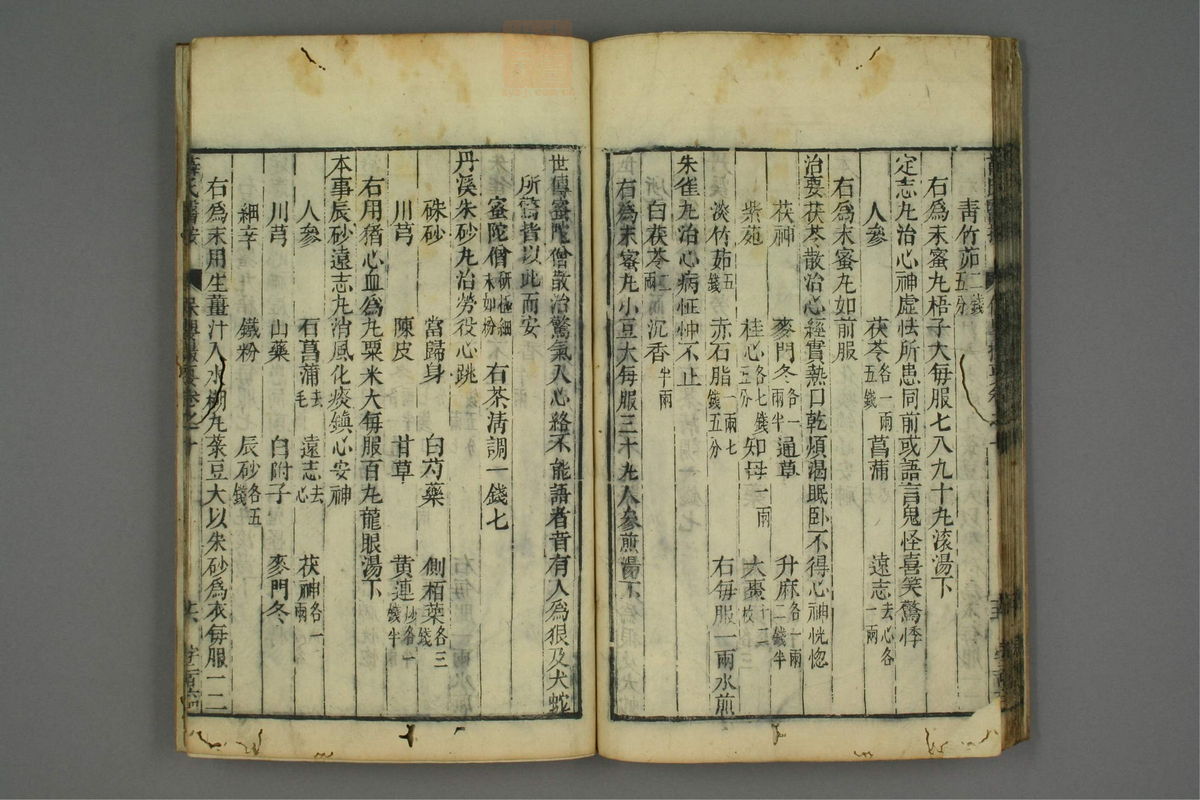 青竹茹二錢五分
右爲末蜜丸梧子大每服七八九十丸滚湯下
定志丸治心神虚怯所患同前或語言鬼怪喜笑驚悸
人參 茯苓各一兩五錢 菖蒲 遠志去心各一兩
右爲末蜜丸如前服
治要茯苓散治心經實熱口乾煩渴眠卧不得心神恍惚
茯神 麥門冬各一兩半 通草 升麻各一兩二錢半
紫菀 桂心各七錢五分 知母一兩 大棗十二枚
淡竹茹五錢 赤石脂一兩七錢五分 右每服一兩水煎
朱雀丸治心病怔忡不止
白茯苓二兩 沉香半兩
右爲末蜜丸小豆大每服三十丸人參煎湯下
世傳蜜陀僧散治驚氣入心絡不能語者昔有人爲狼及犬蛇
所驚皆以此而安
蜜陀僧研極細末如粉 右茶清調一錢七
丹溪朱砂丸治勞役心跳
硃砂 當歸身 白芍藥 側栢葉各三錢
川芎 陳皮 甘草 黄連炒各一錢半
右用猪心血爲丸粟米大每服百丸龍眼湯下
本事辰砂遠志丸消風化痰鎮心安神
人參 石菖蒲去毛 遠志去心 茯神各一兩
川芎 山藥 白附子 麥門冬
細辛 鐵粉 辰砂各五錢
右爲末用生薑汁入水糊丸菉豆大以朱砂爲衣每服一二
薛氏醫按 保嬰撮要卷之十